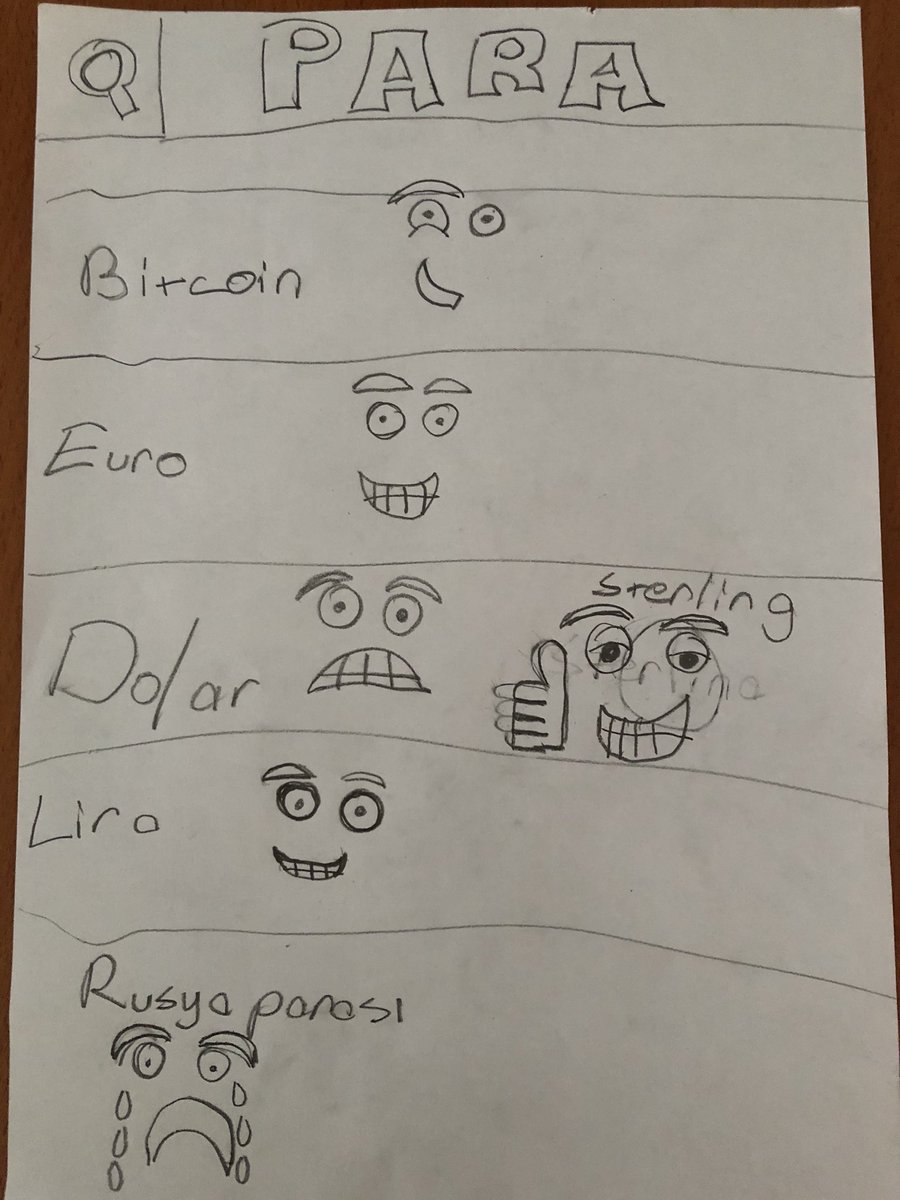 PARA
Bitcoin
Euro
Dolar
Sterling
Sterling
Lira
Rusya parası